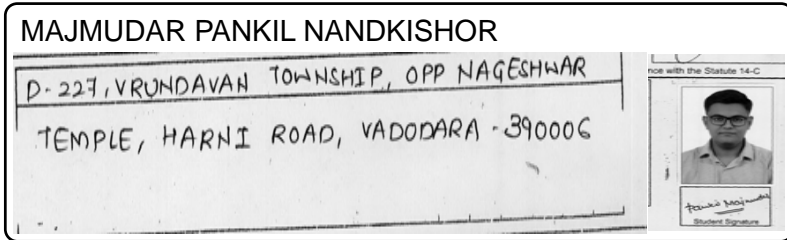 MAJMUDAR PANKIL NANDKISHOR
D-227, VRUNDAVAN TOWNSHIP, OPP NAGESHWAR
TEMPLE, HARNI ROAD, VADODARA - 390006
nce with the Statute 14-C
Pankil Majmudar
Student Signature